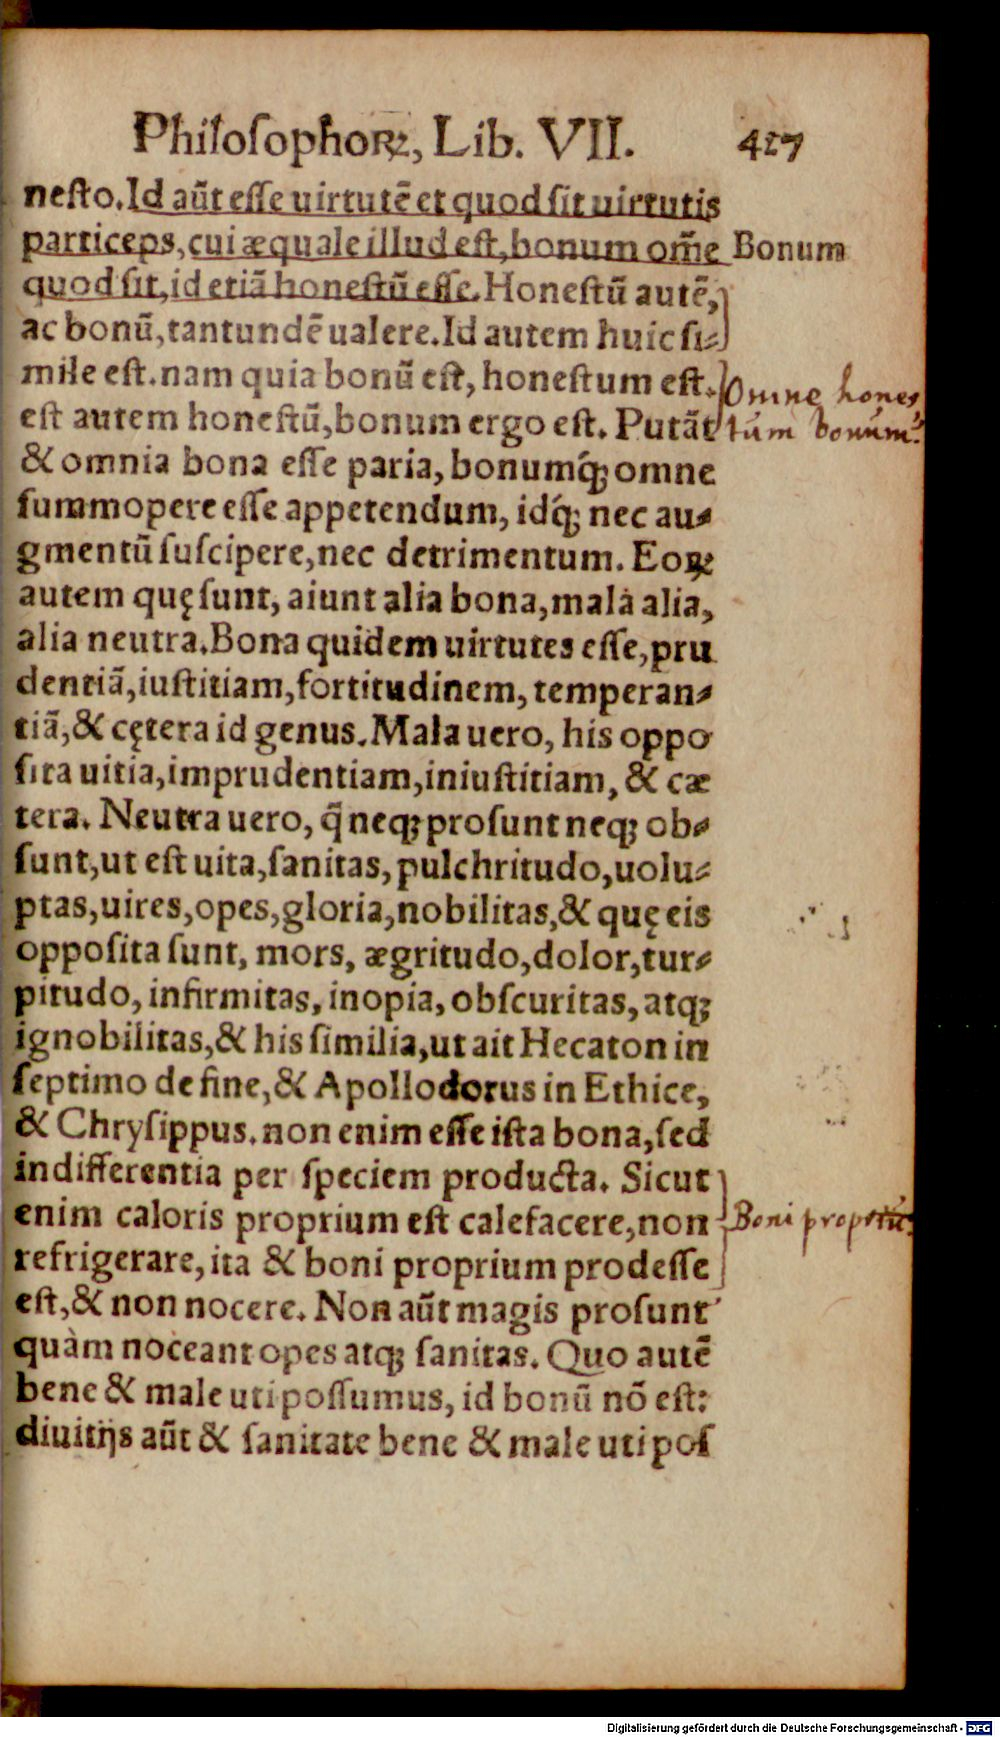 Philosophoꝝ, Lib. VII. 427
nesto. Id aũt esse uirtutẽ et quod sit uirtutis
particeps, cui æquale illud est, bonum om̃e Bonum
quod sit, id etiã honestũ esse. Honestũ autẽ,
ac bonũ, tantundẽ ualere. Id autem huic si⸗
mile est. nam quia bonũ est, honestum est.
Omne hones
est autem honestũ, bonum ergo est. Putãt
tum bonum.
& omnia bona esse paria, bonumq́ꝫ omne
summopere esse appetendum, idq́ꝫ nec au⸗
gmentũ suscipere, nec detrimentum. Eoꝝ
autem quę sunt, aiunt alia bona, mala alia,
alia neutra. Bona quidem uirtutes esse, pru
dentiã, iustitiam, fortitudinem, temperan⸗
tiã, & cętera id genus. Mala uero, his oppo
sita uitia, imprudentiam, iniustitiam, & cæ
tera. Neutra uero, q̃ neqꝫ prosunt neqꝫ ob⸗
sunt, ut est uita, sanitas, pulchritudo, uolu⸗
ptas, uires, opes, gloria, nobilitas, & quę eis
opposita sunt, mors, ægritudo, dolor, tur⸗
pitudo, infirmitas, inopia, obscuritas, atqꝫ
ignobilitas, & his similia, ut ait Hecaton in
septimo de fine, & Apollodorus in Ethice,
& Chrysippus. non enim esse ista bona, sed
indifferentia per speciem producta. Sicut
enim caloris proprium est calefacere, non
Boni propriũ.
refrigerare, ita & boni proprium prodesse
est, & non nocere. Non aũt magis prosunt
quàm noceant opes atqꝫ sanitas. Quo autẽ
bene & male uti possumus, id bonũ nõ est:
diuitijs aũt & sanitate bene & male uti pos
Digitalisierung gefördert durch die Deutsche Forschungsgemeinschaft - DFG